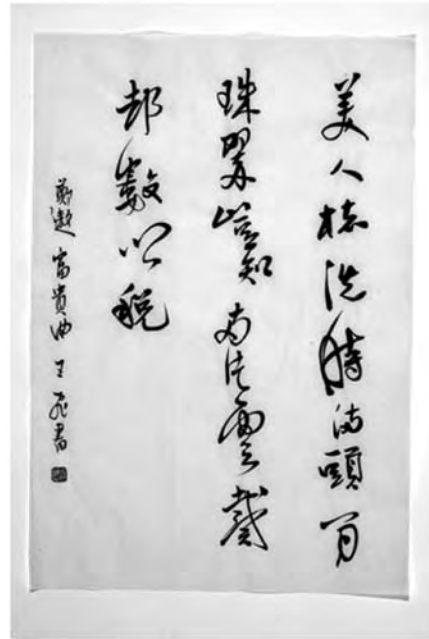 美人梳洗時滿頭間
珠翠豈知兩片雲戴
却數鄉税
鄭遨富貴曲王飛書